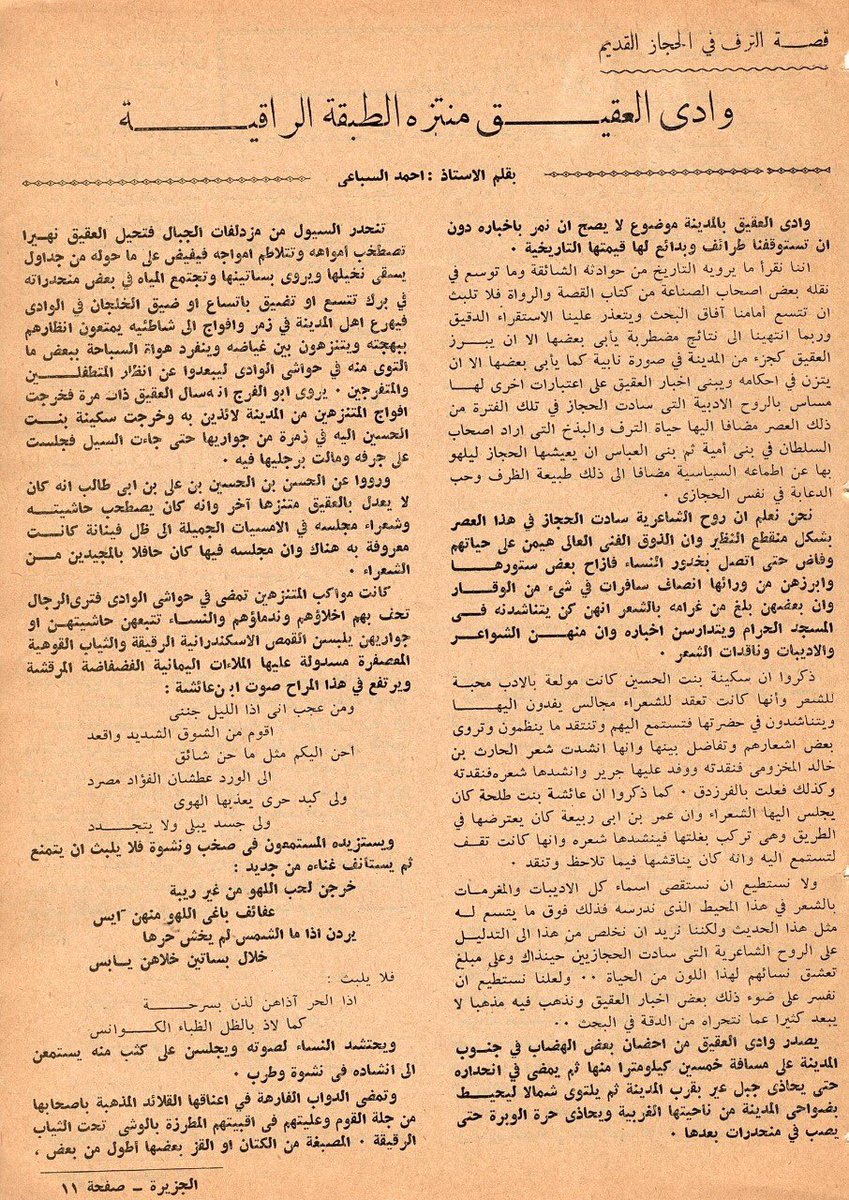 قصـــة الترف في الحجاز القديم
وادى العقيـــــق منتزه الطبقة الراقيـــــة
بقلم الاستاذ : احمد السباعى
وادى العقيق بالمدينة موضوع لا يصح ان نمر باخباره دون
ان تستوقفنا طرائف وبدائع لها قيمتها التاريخية .
اننا نقرأ ما يرويه التاريخ من حوادثه الشائقة وما توسع في
نقله بعض اصحاب الصناعة من كتاب القصة والرواة فلا تلبث
ان تتسع أمامنا آفاق البحث ويتعذر علينا الاستقراء الدقيق
وربما انتهينا الى نتائج مضطربة يأبى بعضها الا ان يبـــرز
العقيق كجزء من المدينة في صورة نابية كما يأبى بعضها الا ان
يتزن في احكامه ويبنى اخبار العقيق على اعتبارات اخرى لهـــا
مساس بالروح الادبية التى سادت الحجاز في تلك الفترة من
ذلك العصر مضافا اليها حياة الترف والبذخ التى اراد اصحاب
السلطان في بنى أمية ثم بنى العباس ان يعيشها الحجاز ليلهو
بها عن اطماعه السياسية مضافا الى ذلك طبيعة الظرف وحب
الدعابة في نفس الحجازى .
نحن نعلم ان روح الشاعرية سادت الحجاز في هذا العصر
بشكل منقطع النظير وان الذوق الفنى العالى هيمن على حياتهم
وفاض حتى اتصل بخدور النساء فازاح بعض ستورهـــا
وابرزهن من ورائها انصاف سافرات في شىء من الوقـــار
وان بعضهن بلغ من غرامه بالشعر انهن كن يتناشدنه فـــى
المسجد الحرام ويتدارسن اخباره وان منهـــن الشواعـــر
والاديبات وناقدات الشعر .
ذكروا ان سكينة بنت الحسين كانت مولعة بالادب محبة
للشعر وأنها كانت تعقد للشعراء مجالس يفدون اليهـــا
ويتناشدون في حضرتها فتستمع اليهم وتنتقد ما ينظمون وتروى
بعض اشعارهم وتفاضل بينها وانها انشدت شعر الحارث بن
خالد المخزومى فنقدته ووفد عليها جرير وانشدها شعره فنقدته
وكذلك فعلت بالفرزدق . كما ذكروا ان عائشة بنت طلحة كان
يجلس اليها الشعراء وان عمر بن ابى ربيعة كان يعترضها في
الطريق وهى تركب بغلتها فينشدها شعره وانها كانت تقـــف
لتستمع اليه وانه كان يناقشها فيما تلاحظ وتنقد .
ولا نستطيع ان نستقصى اسماء كل الاديبات والمغرمات
بالشعر في هذا المحيط الذى ندرسه فذلك فوق ما يتسع لـــه
مثل هذا الحديث ولكننا نريد ان نخلص من هذا الى التدليل
على الروح الشاعرية التى سادت الحجازيين حينذاك وعلى مبلغ
تعشق نسائهم لهذا اللون من الحياة .. ولعلنا نستطيع ان
نفسر على ضوء ذلك بعض اخبار العقيق ونذهب فيه مذهبا لا
يبعد كثيرا عما نتحراه من الدقة في البحث ..
يصدر وادى العقيق من احضان بعض الهضاب في جنوب
المدينة على مسافة خمسين كيلومترا منها ثم يمضى في انحداره
حتى يحاذى جبل عير بقرب المدينة ثم يلتوى شمالا ليحيـــط
بضواحى المدينة من ناحيتها الغربية ويحاذى حرة الوبرة حتى
يصب في منحدرات بعدها .
تنحدر السيول من مزدلفات الجبال فتحيل العقيق نهـرا
تصطخب أمواهه وتتلاطم امواجه فيفيض على ما حوله من جداول
يسقى نخيلها ويروى بساتينها وتجتمع المياه في بعض منحدراته
في برك تتسع او تضيق باتساع او ضيق الخلجان في الوادى
فيهرع اهل المدينة في زمر وافواج الى شاطئيه يمتعون انظارهم
ببهجته ويتنزهون بين غياضه وينفرد هواة السباحة ببعض ما
التوى منه في حواشى الوادى ليبعدوا عن انظار المتطفلـــين
والمتفرجين . يروى ابو الفرج انه سال العقيق ذات مرة فخرجت
افواج المتنزهين من المدينة لائذين به وخرجت سكينة بنـــت
الحسين اليه في زمرة من جواريها حتى جاءت السيل فجلست
على جرفه ومالت برجليها فيه .
ورووا عن الحسن بن الحسين بن على بن ابى طالب انه كان
لا يعدل بالعقيق متنزها آخر وانه كان يصطحب حاشيتـــه
وشعراء مجلسه في الامسيات الجميلة الى ظل فينانة كانـــت
معروفة به هناك وان مجلسه فيها كان حافلا بالمجيدين مـــن
الشعراء .
كانت مواكب المتنزهين تمضى في حواشى الوادى فترى الرجال
تحف بهم اخلاؤهم وندماؤهم والنساء تتبعهن حاشيتهـــن او
جواريهن يلبسن القمص الاسكندرانية الرقيقة والثياب القوهية
المعصفرة مسدولة عليها الملاءات اليمانية الفضفاضة المرقشة
ويرتفع في هذا المراح صوت ابن عائشة :
ومن عجب انى اذا الليل جننى
اقوم من الشوق الشديد واقعد
احن اليكم مثل ما حن شائق
الى الورد عطشان الفؤاد مصرد
ولى كبد حرى يعذبها الهوى
ولى جسد يبلى ولا يتجـــدد
ويستزيده المستمعون فى صخب ونشوة فلا يلبث ان يتمنع
ثم يستأنف غناءه من جديد :
خرجن لحب اللهو من غير ريبة
عفائف باغى اللهو منهن آيس
يردن اذا ما الشمس لم يخش حرها
خلال بساتين خلاهن يـابس
فلا يلبث :
اذا الحر آذاهن لذن بسرحـــة
كما لاذ بالظل الظباء الكـــوانس
ويحتشد النساء لصوته ويجلسن على كثب منه يستمعن
الى انشاده فى نشوة وطرب .
وتمضى الدواب الفارهة في اعناقها القلائد المذهبة باصحابها
من جلة القوم وعليتهم في اقبيتهم المطرزة بالوشى تحت الثياب
الرقيقة . المصبغة من الكتان او القز بعضها أطول من بعض ،
الجزيرة – صفحة ١١